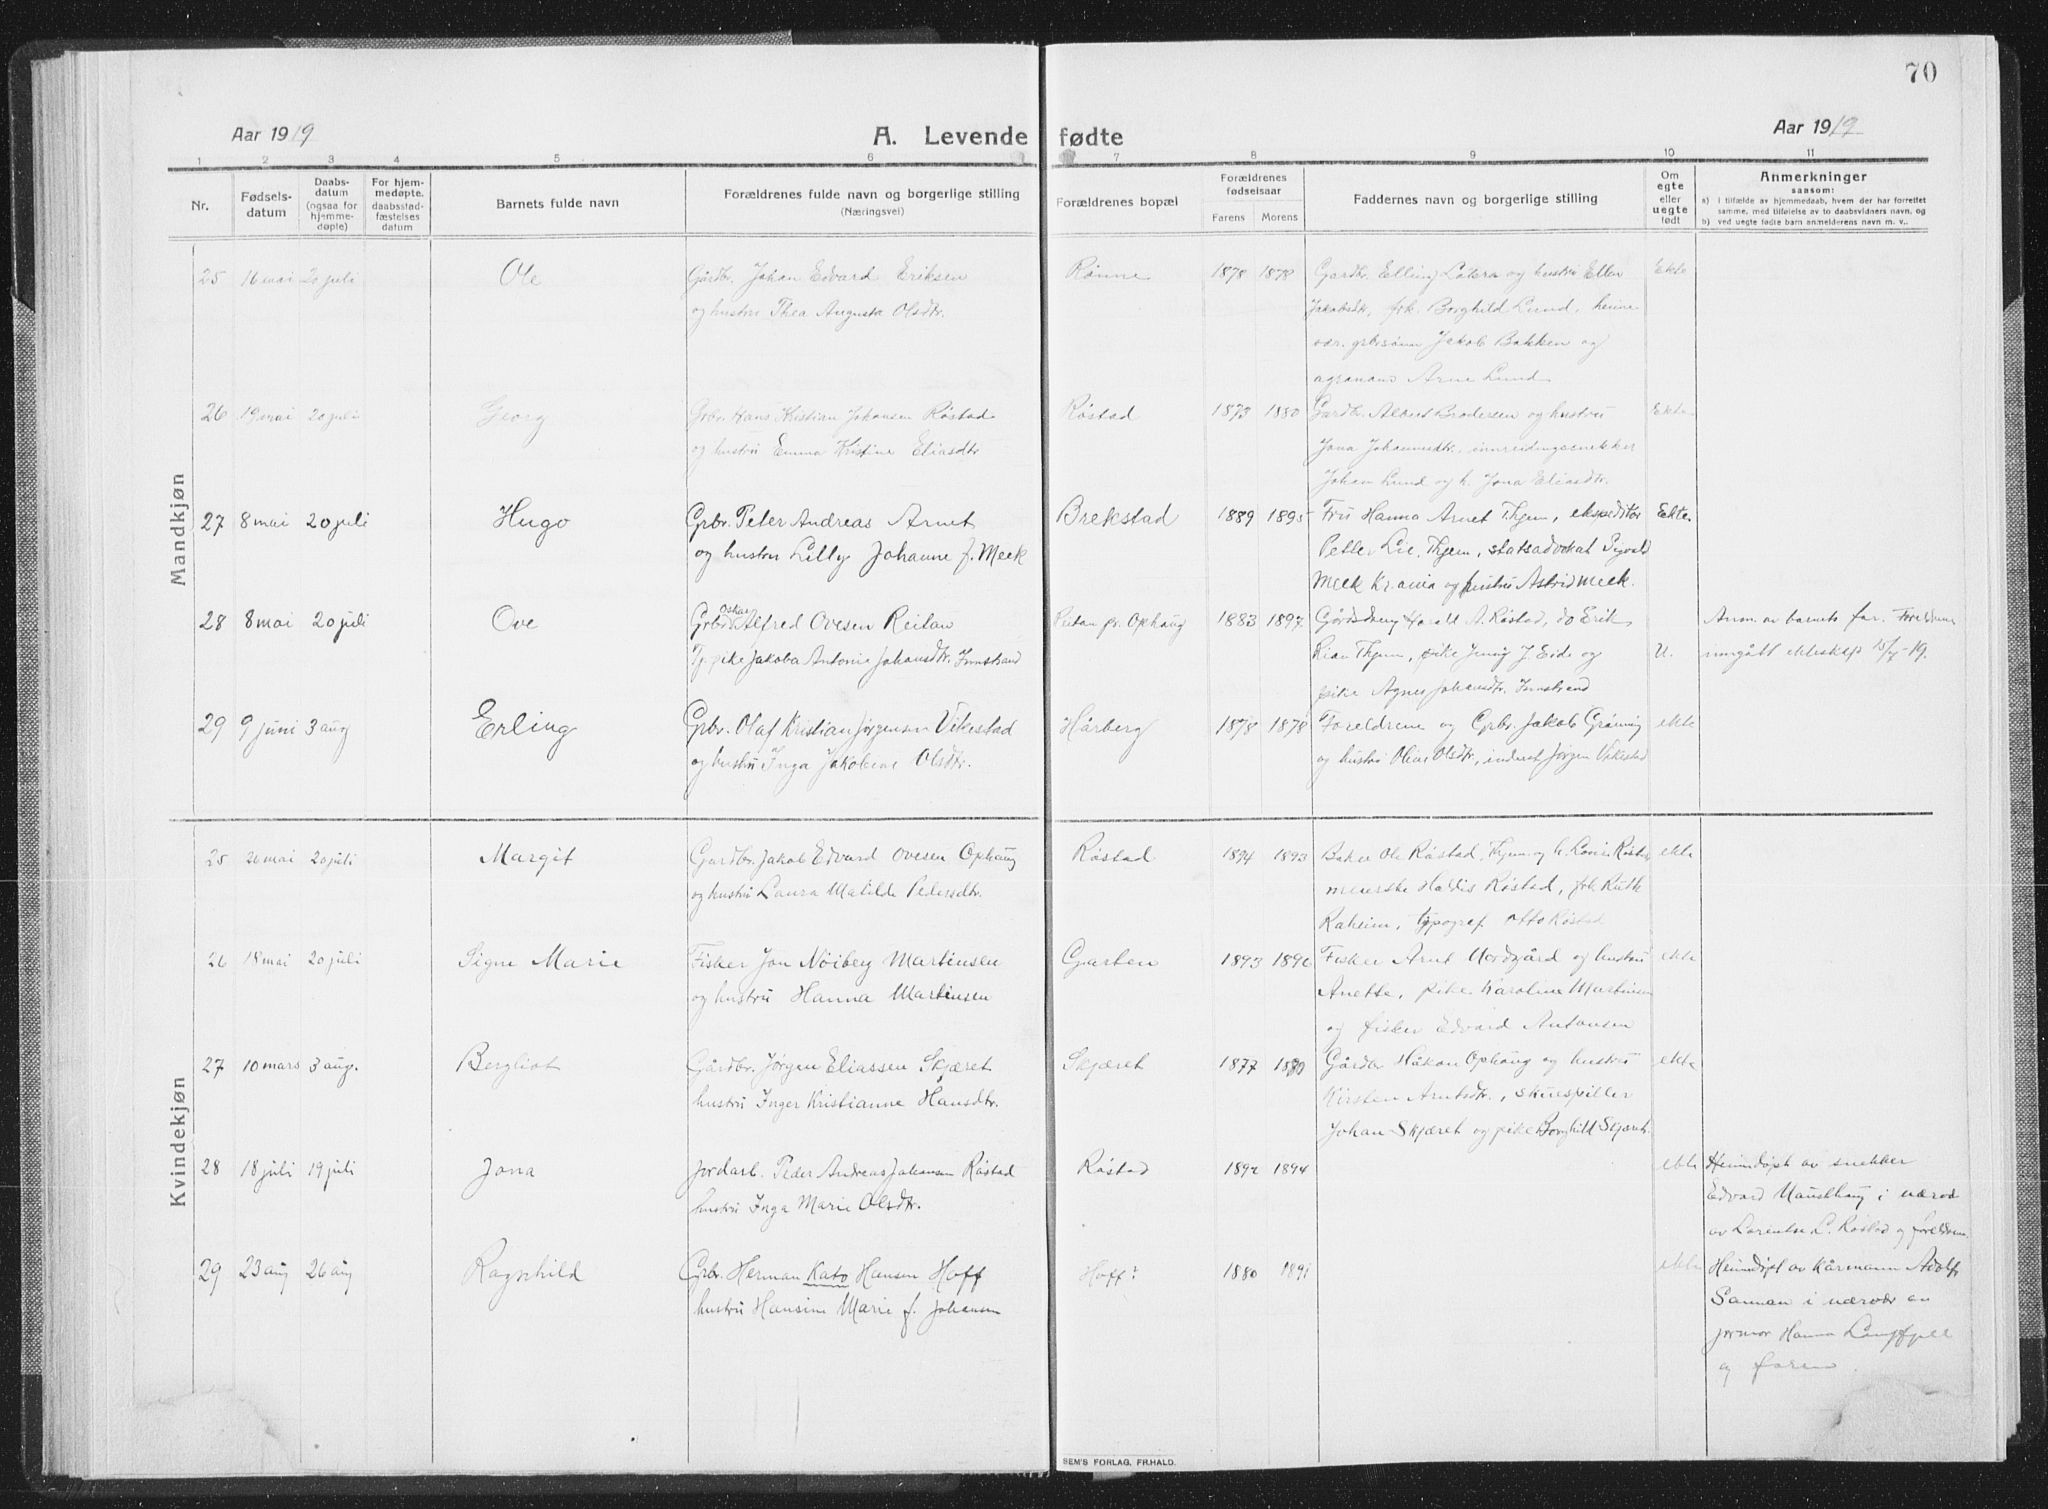 70
Aar 1919
A. Levende fødte
Aar 1919
1 2 3 4 5 6 7 8 9 10 11
Nr.
Fødsels-
datum
Daabs-
datum
(ogsaa for
hjemme-
døpte)
For hjem-
medøpte,
daabsstad-
fæstelses
datum
Barnets fulde navn
Forældrenes fulde navn og borgerlige stilling
(Næringsvei)
Forældrenes bopæl
Forældrenes
fødselsaar
Farens Morens
Faddernes navn og borgerlige stilling
Om
egte
eller
uegte
født
Anmerkninger
saasom:
a) I tilfælde av hjemmedaab, hvem der har forrettet
samme, med tilføielse av to daabsvidners navn, og
b) ved uegte fødte barn anmelderens navn m. v..
Mandkjøn
25 16 mai 20 juli Ole Gårdbr. Johan Edvard Eriksen Rønne 1878 1878 Gardbr. Elling og hustru Ellen Ekte
og hustru Thea Augusta Olsdtr. Jakobsdtr, frk. Borghild Lund, heime
vær. grbrsønn Jakob Bakken og
agronom Arne Lund
26 19 mai 20 juli Georg Grbr. Hans Kristian Johansen Røstad Røstad 1873 1880 Gardbr. Albert Brodersen og hustru Ekte
og hustru Emma Kristine Eliasdtr Jona Johannesdtr, innreidingssnekker
Johan Lund og h. Jona Eliasdtr.
27 8 mai 20 juli Hugo Grbr. Peter Andreas Arnet Brekstad 1889 1895 Fru Hanna Arnet Thjem, ekspeditør Ekte
og hustru Lilly Johanne f. Meek Petter Lie, Thjem, statsadvokat Sigvald
Meek Kr.ania og hustru Astrid Meek.
28 8 mai 20 juli Ove Grbr. Oskar Alfred Ovesen Reitan Reitan pr. Ophaug 1883 1897 Gårdsdreng Harald A. Røstad, do Erik Anm. av barnets far. Foreldrene
Tj. pike Jakoba Antonie Johansdtr. Innstrand Lian Thjem, pike Jenny J. Eide og U. inngått ekteskap 15/7-19.
pike Agnes Johansdtr. Innstrand
29 9 juni 3 aug Erling Grbr. Olaf Kristian Jørgensen Vikestad Hårberg 1878 1878 Foreldrene og Grbr. Jakob Grøning ekte
og hustru Inga Jakobine Olsdtr. og hustru Oline Olsdtr, inderst Jørgen Vikestad
Kvindekjøn
25 26 mai 20 juli Margit Gardbr. Jakob Edvard Ovesen Ophaug Røstad 1894 1893 Baker Ole Røstad, Thjem og h. Lovise Røstad ekte
og hustru Laura Matilde Pedersdtr. meierske Haldis Røstad, frk. Ruth
Raheim, typograf Otto Røstad
26 18 mai 20 juli Signe Marie Fisker Jon Nøiberg Martinsen Garten 1893 Fisker Arnt Nordgård og hustru ekte
og hustru Hanna Martinsen Anette, pike Karoline Martinsen
og fisker Edvard Antonsen
27 10 mars 3 aug. Bergliot Gårdbr. Jørgen Eliassen Skjæret Skjæret 1877 1880 Gårdbr Håkon Ophaug og hustru ekte
hustru Inger Kristianne Hansdtr. Kirsten Arntsdtr., skuespiller
Johan Skjæret og pike Borghild Skjæret.
28 18 juli 19 juli Jona Jordarb. Peder Andreas Johansen Røstad Røstad 1892 1894 ekte Heimdøpt av snekker
hustru Inga Marie Olsdtr. Edvard Haugen i nærvær
av Lorentse L. Røstad og foreldrene.
29 23 aug 26 aug Ragnhild Grbr. Herman Kato Hansen Hoff Hoff: 1880 1891 ekte Heimdøpt av Adolf
hustru Hansine Marie f. Johansen Sanman i nærvær av
jormor Hanna Langfjell
og faren.
SEM'S FORLAG, FR.HALD.